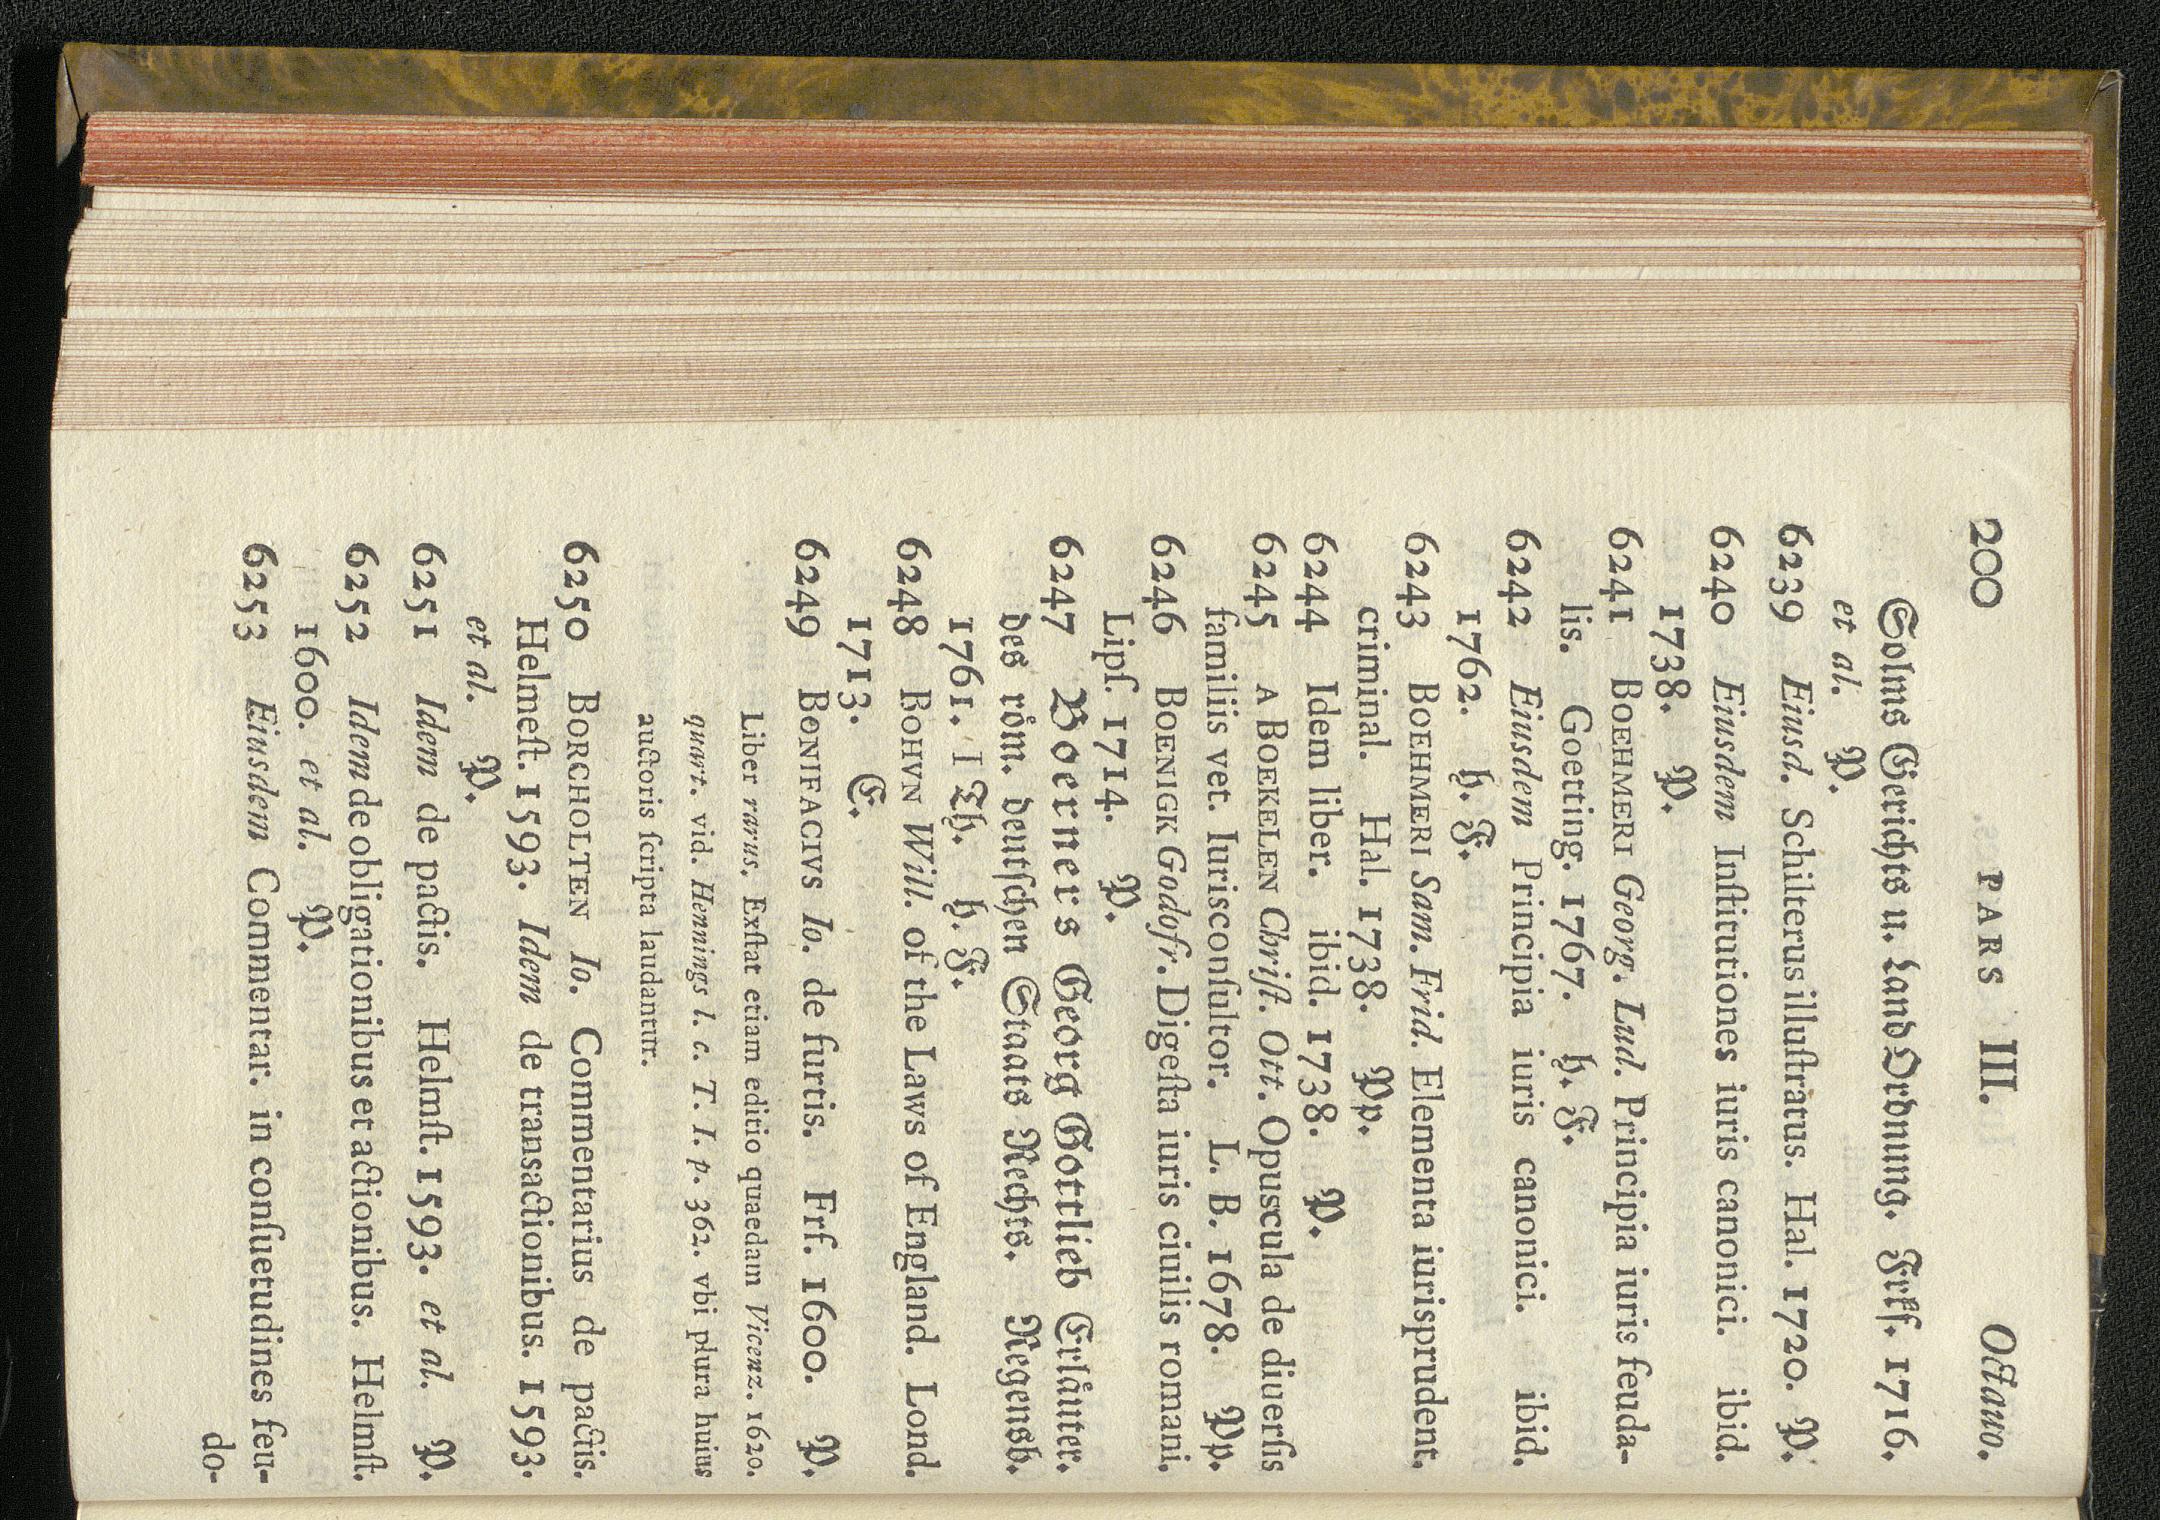 200 PARS III. Octauo.
Solms Gerichts u. LandOrdnung. Frkf. 1716.
et al. P.
6239 Eiusd. Schilterus illuſtratus. Hal. 1720. P.
6240 Eiusdem Inſtitutiones iuris canonici. ibid.
1738. P.
6241 BOEHMERI Georg. Lud. Principia iuris feuda-
lis. Goetting. 1767. h. F.
6242 Eiusdem Principia iuris canonici. ibid.
1762. h. F.
6243 BOEHMERI Sam. Frid. Elementa iurisprudent.
criminal. Hal. 1738. Pp.
6244 Idem liber. ibid. 1738. P.
6245 A BOEKELEN Chriſt. Ott. Opuscula de diuerſis
familiis vet. Iurisconſultor. L. B. 1678. Pp.
6246 BOENIGK Godofr. Digeſta iuris ciuilis romani.
Lipſ. 1714. P.
6247 Boerners Georg Gottlieb Erläuter.
des röm. deutſchen Staats Rechts. Regensb.
1761. 1 Th. h. F.
6248 BOHVN Will. of the Laws of England. Lond.
1713. E.
6249 BONIFACIVS Io. de furtis. Frf. 1600. P.
Liber rarus. Exſtat etiam editio quaedam Vicenz. 1620.
quart. vid. Hennings l. c. T. I. p. 362. vbi plura huius
auctoris ſcripta laudantur.
6250 BORCHOLTEN Io. Commentarius de pactis.
Helmeſt. 1593. Idem de transactionibus. 1593.
et al. P.
6251 Idem de pactis. Helmſt. 1593. et al. P.
6252 Idem de obligationibus et actionibus. Helmſt.
1600. et al. P.
6253 Eiusdem Commentar. in conſuetudines feu-
do-